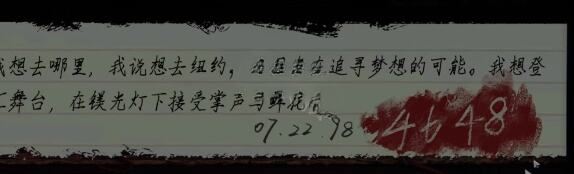 想去哪里，我说想去纽约，追寻梦想的可能。我想登
舞台，在镁光灯下接受掌声与鲜花
07.22.98
4648